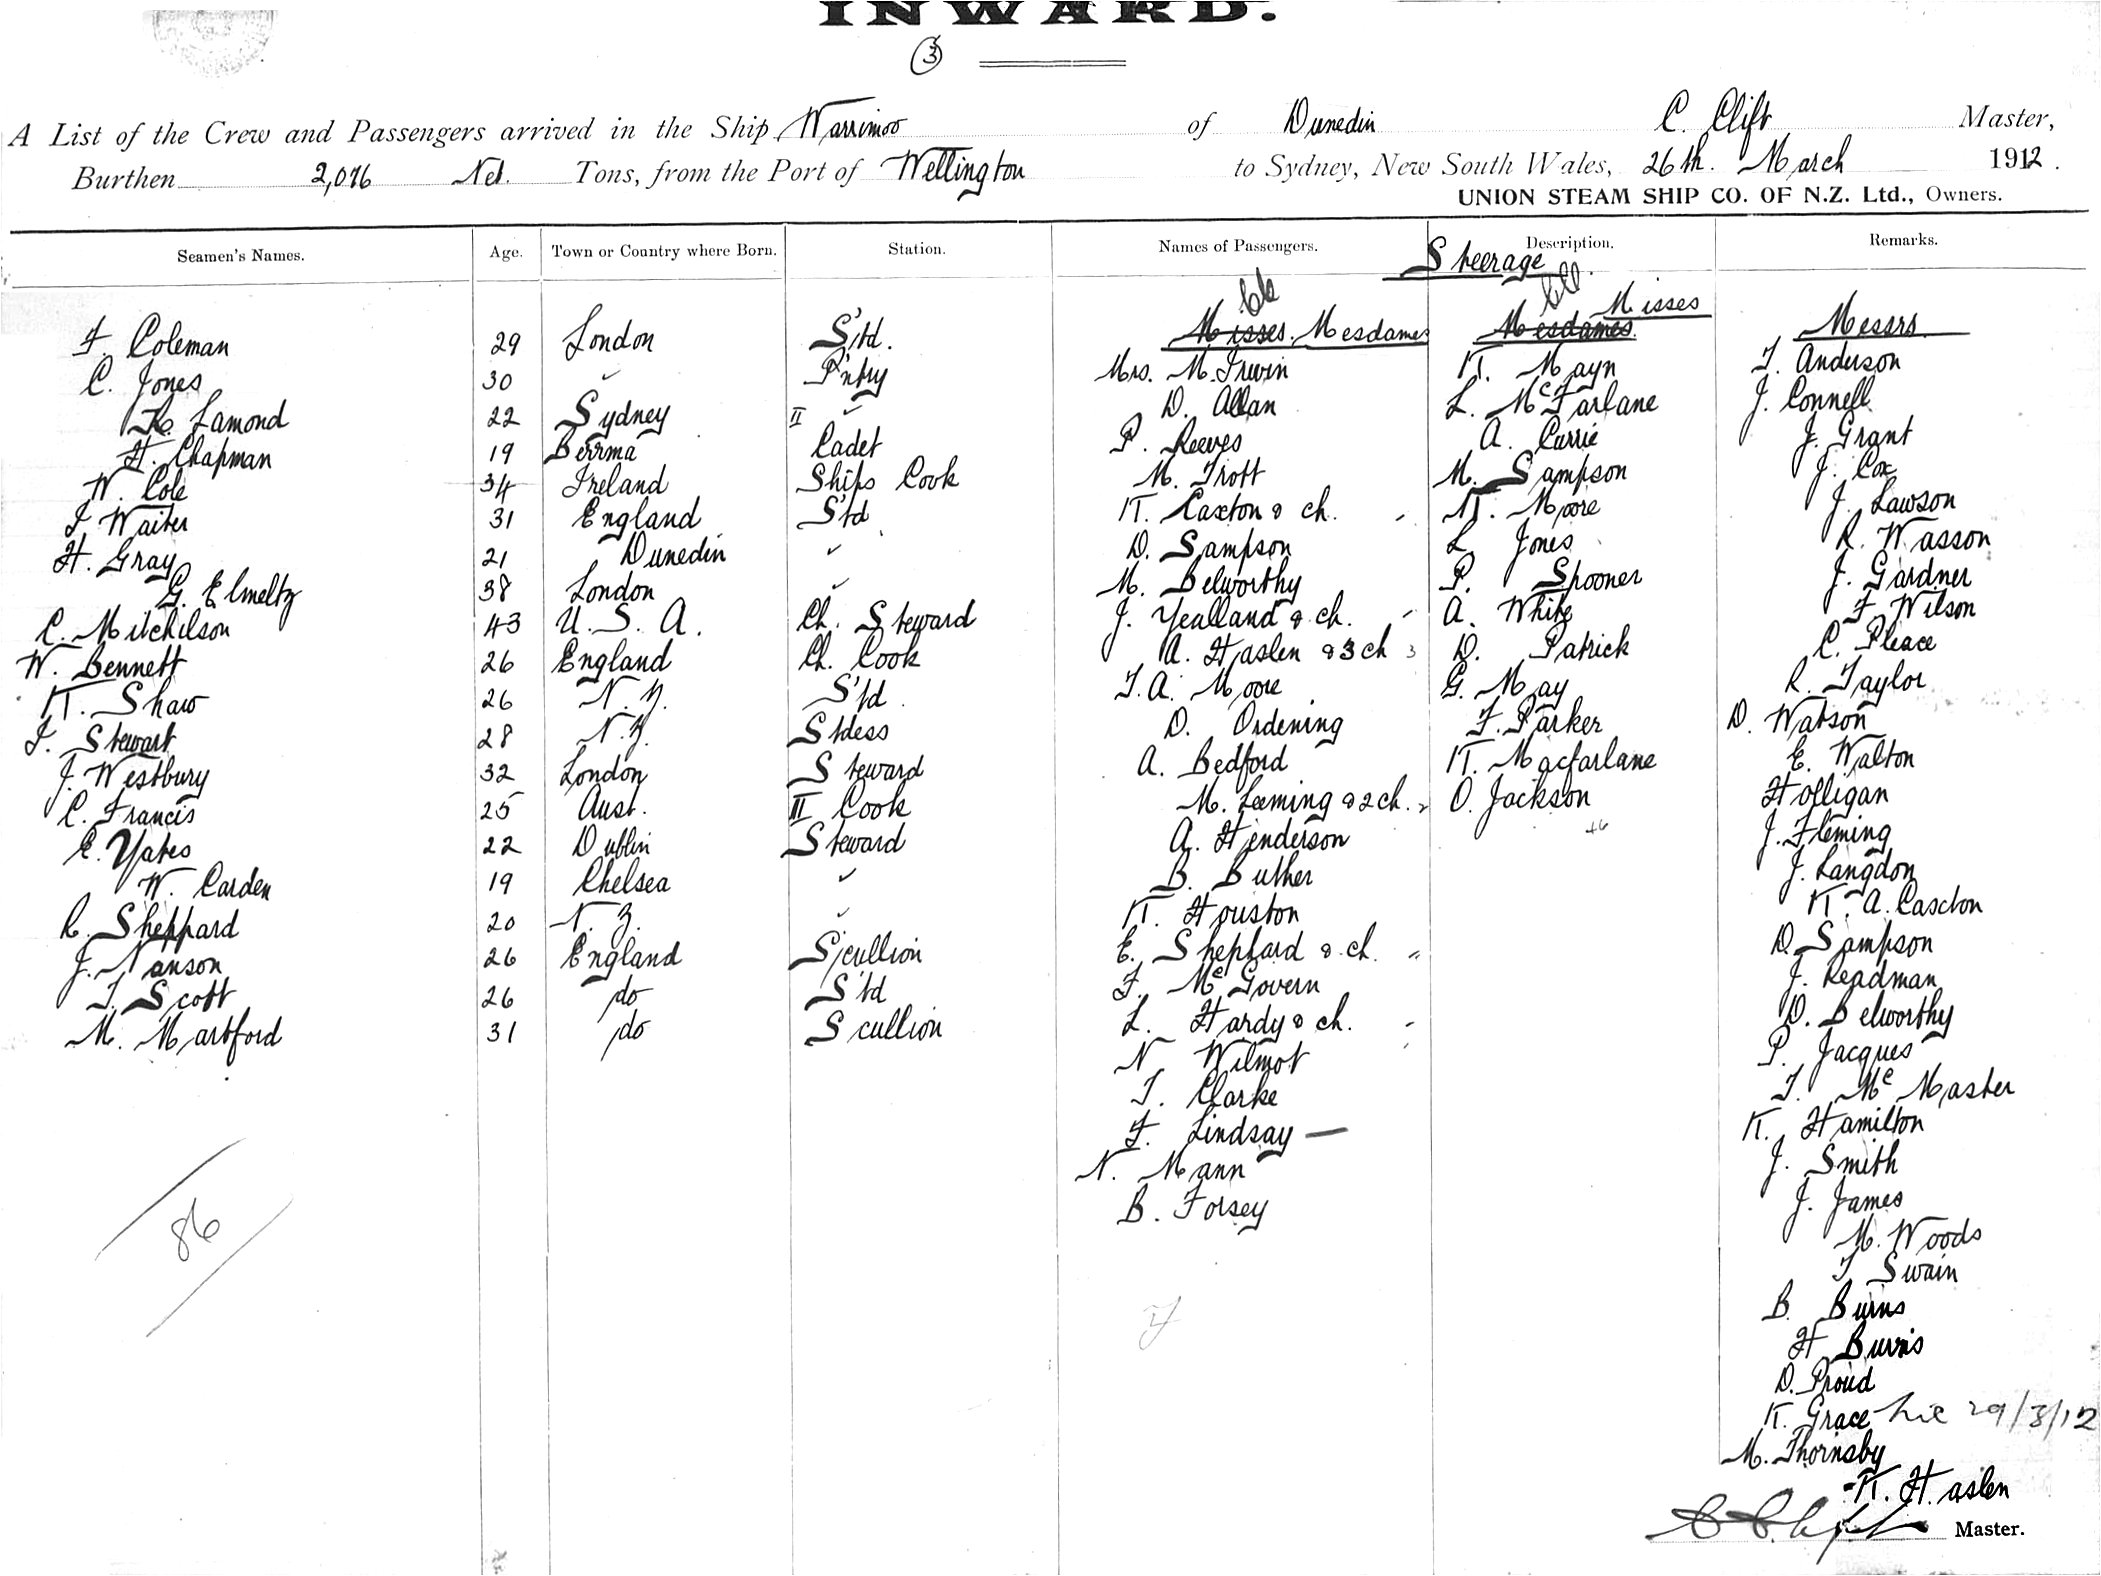 INWARD.
3
A List of the Crew and Passengers arrived in the Ship Warrimoo of Dunedin C. Clift Master,
Burthen 2,076 Net. Tons, from the Port of Wellington to Sydney, New South Wales, 26th. March 1912.
UNION STEAM SHIP CO. OF N.Z. Ltd., Owners.
Seamen's Names. Age. Town or Country where Born. Station. Names of Passengers. Description. Remarks.
Steerage
F Coleman 29 London S'td.
C. Jones 30 ✓ P'ntry
Lamond 22 Sydney II ✓
H. Chapman 19 Berrma Cadet
W. Cole 34 Ireland Ships Cook
J Waiter 31 England S'td
H. Gray 21 Dunedin ✓
G. Elmeltz 38 London ✓
C. Mitchilson 43 U.S.A. Ch. Steward
W. Bennett 26 England Ch. Cook
K. Shaw 26 N.Z. S'td
J. Stewart 28 N.Z. Stdess
J. Westbury 32 London Steward
C. Francis 25 Aust. II Cook
E. Yates 22 Dublin Steward
W. Carden 19 Chelsea ✓
R. Sheppard 20 N.Z. ✓
J. Nanson 26 England S/cullion
T. Scott 26 do S'td
M. Martford 31 do Scullion
86
Misses. Mesdames
Mrs. M. Irwin
D. Allan
P. Reeves
M. Trott
K. Caxton & ch.
D. Sampson
M. Belworthy
J. Yealland & ch.
A. Haslen & 3 ch 3
T. A. Moore
D. Ordening
A. Bedford
M. Leeming & 2 ch. 2
A. Henderson
B. Buther
K. Houston
E. Shephard & ch.
F. McGovern
L. Hardy & ch.
N Wilmot
T. Clarke
F. Lindsay —
N. Mann
B. Forsey
Mesdames. Misses
K. Mayn
L. McFarlane
A. Currie
M. Sampson
N. Moore
L Jones
P. Spooner
A. White
D. Patrick
G. May
F. Parker
K. Macfarlane
O. Jackson
46
Messrs
T. Anderson
J. Connell
J. Grant
J. Cox
J. Lawson
R. Wasson
J. Gardner
F Wilson
C. Pleace
R. Taylor
D. Watson
E. Walton
Holligan
J. Fleming
J. Langdon
K. A. Caxton
D. Sampson
J. Readman
D. Belworthy
P. Jacques
T. McMaster
K. Hamilton
J. Smith
J. James
M. Woods
T Swain
B. Burns
H Burns
D. Proud
K. Grace 29/3/12
M. Thornsby
K. Haslen
Master.